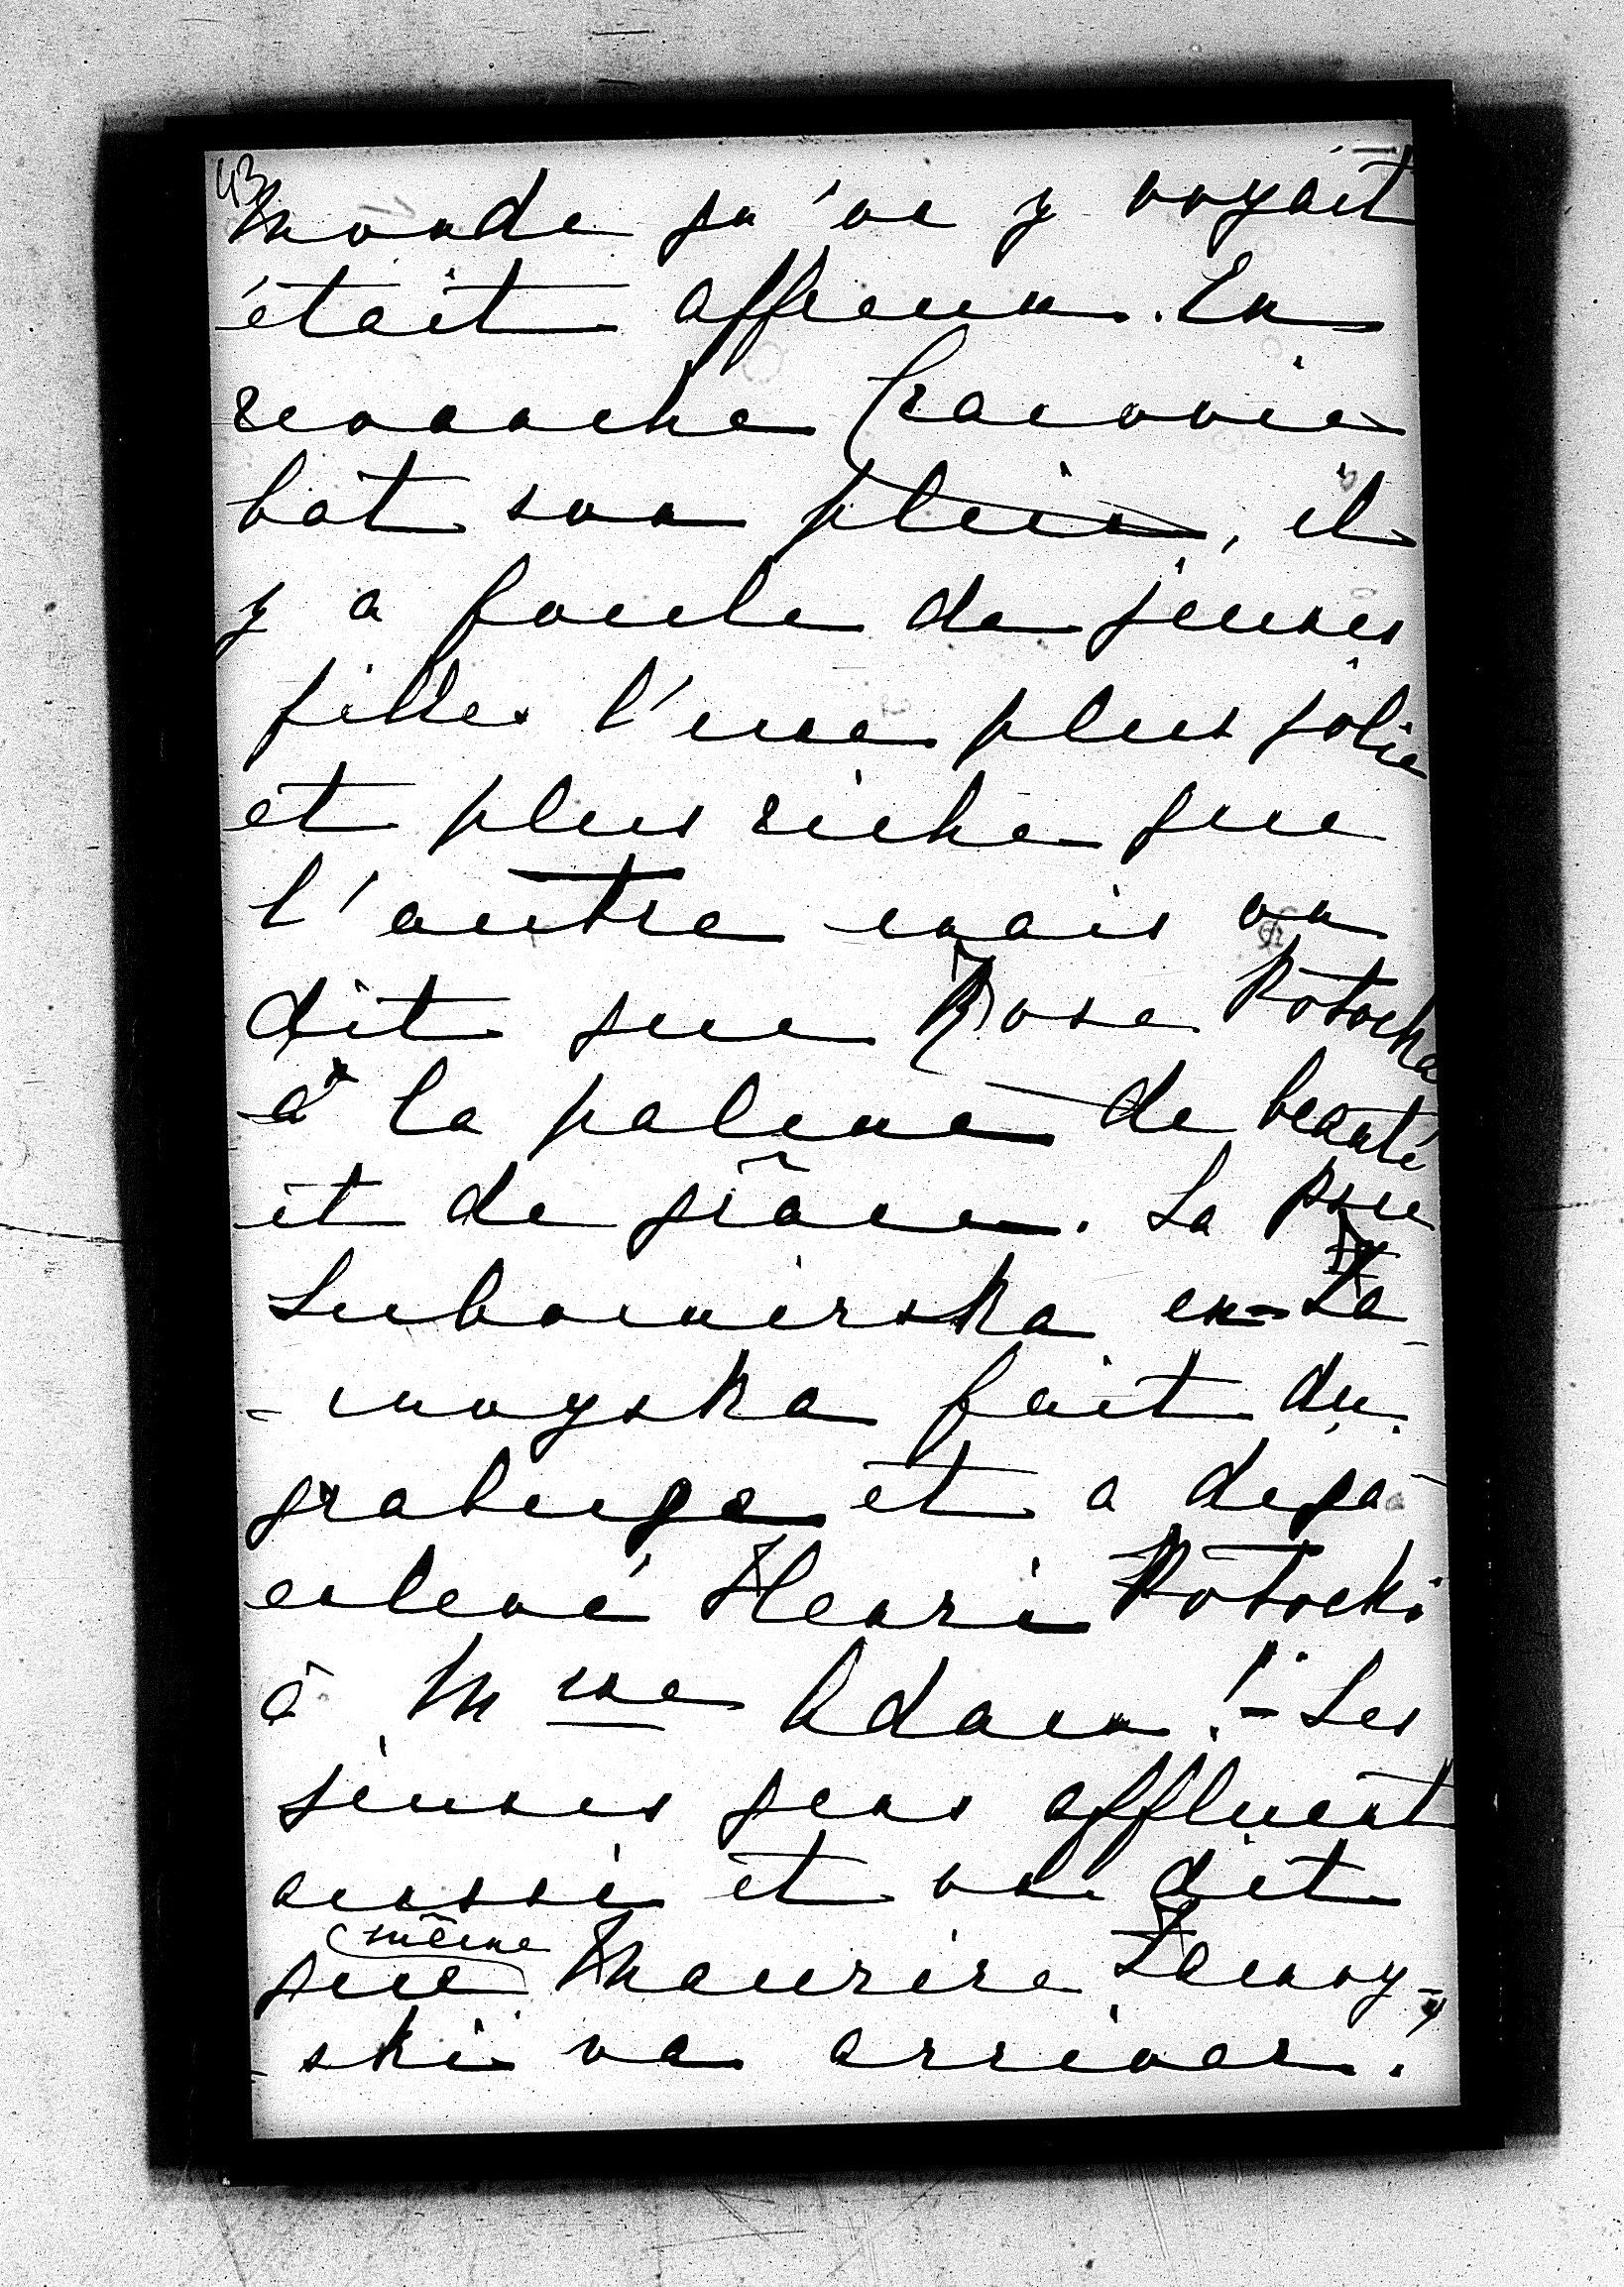 43
monde qu'on y voyait
était affreux. En
revanche Cracovie
bat son plein, il
y a foule de jeunes
filles l'une plus jolie
et plus riche que
l'autre mais on
dit que Rose Potocka
a la palme de beauté
et de grâce. La psse
Lubomirska en Za
- moyska fait du
grabuge et a déjà
enlevé Henri Potocki
à Mme Adam! - Les
jeunes gens affluent
aussi et on dit
même
que Maurice Zamoy-
- ski va arriver.